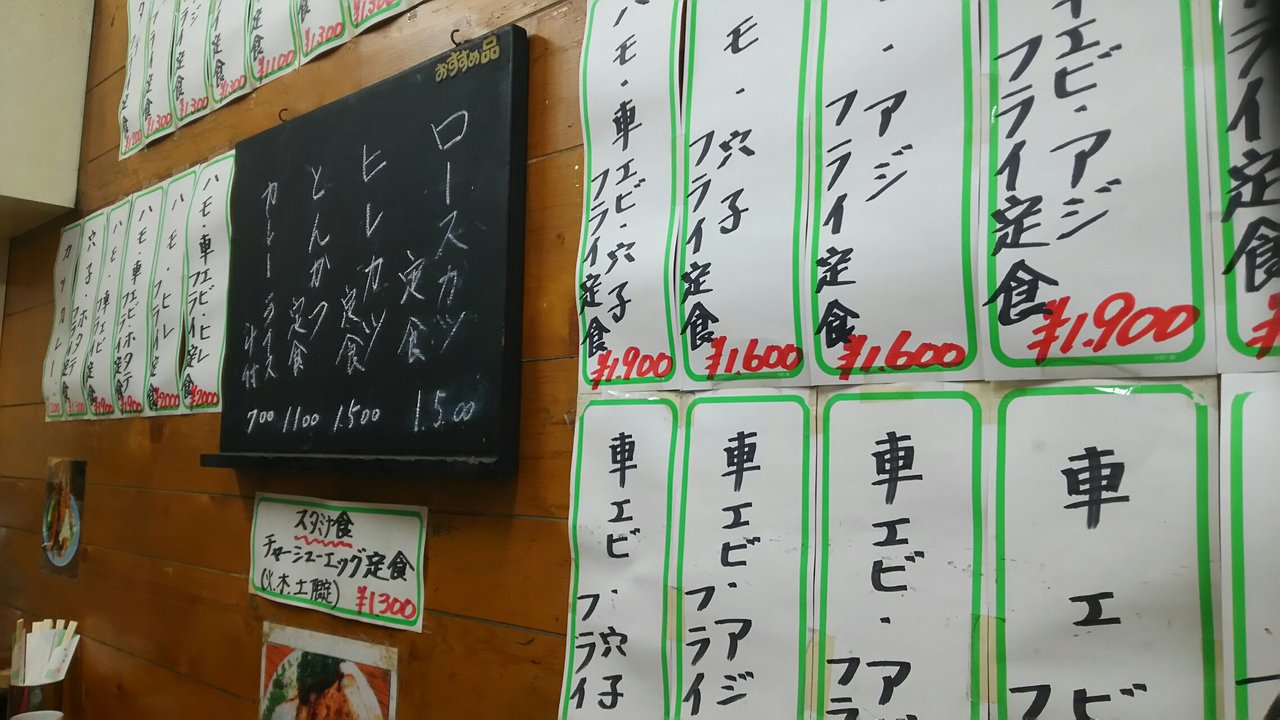 おすすめ品
ロースカツ
定食
1500
ヒレカツ
定食
1500
とんかつ
定食
1100
カレーライス
汁付
700
スタミナ食
チャーシューエッグ定食
(火.木.土限定)
¥1300
エビ・アジ
フライ定食
¥1.900
・アジ
フライ定食
¥1.600
モ・穴子
フライ定食
¥1.600
ハモ・車エビ・穴子
フライ定食
¥1.900
車エビ
フ
車エビ・ア
フラ
車エビ・アジ
フライ
車エビ・穴子
フライ
フライ定食
ハモ・車エビ・ヒレ
フライ定食
¥2000
ハモ・ヒレ
フライ定食
¥2000
ハモ・車エビ・ホタテ
フライ定食
¥1900
ハモ・車エビ
フライ定食
¥1900
穴子・ホタテ
フライ定食
カツカレー
フライ定食
¥1300
¥1100
¥1300
¥1300
¥1300